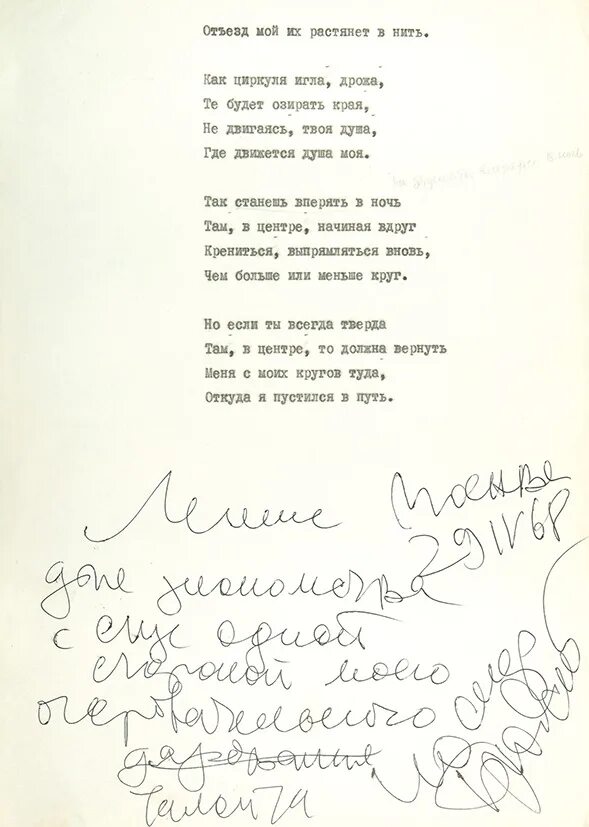 Отъезд мой их растянет в нить.
Как циркуля игла, дрожа,
Те будет озирать края,
Не двигаясь, твоя душа,
Где движется душа моя.
Так станешь вперять в ночь
Там, в центре, начиная вдруг
Крениться, выпрямляться вновь,
Чем больше или меньше круг.
Но если ты всегда тверда
Там, в центре, то должна вернуть
Меня с моих кругов туда,
Откуда я пустился в путь.
Москва
29 IV 68
для знакомства
с еще одной
стороной моего
очаровательного
дарования
таланта